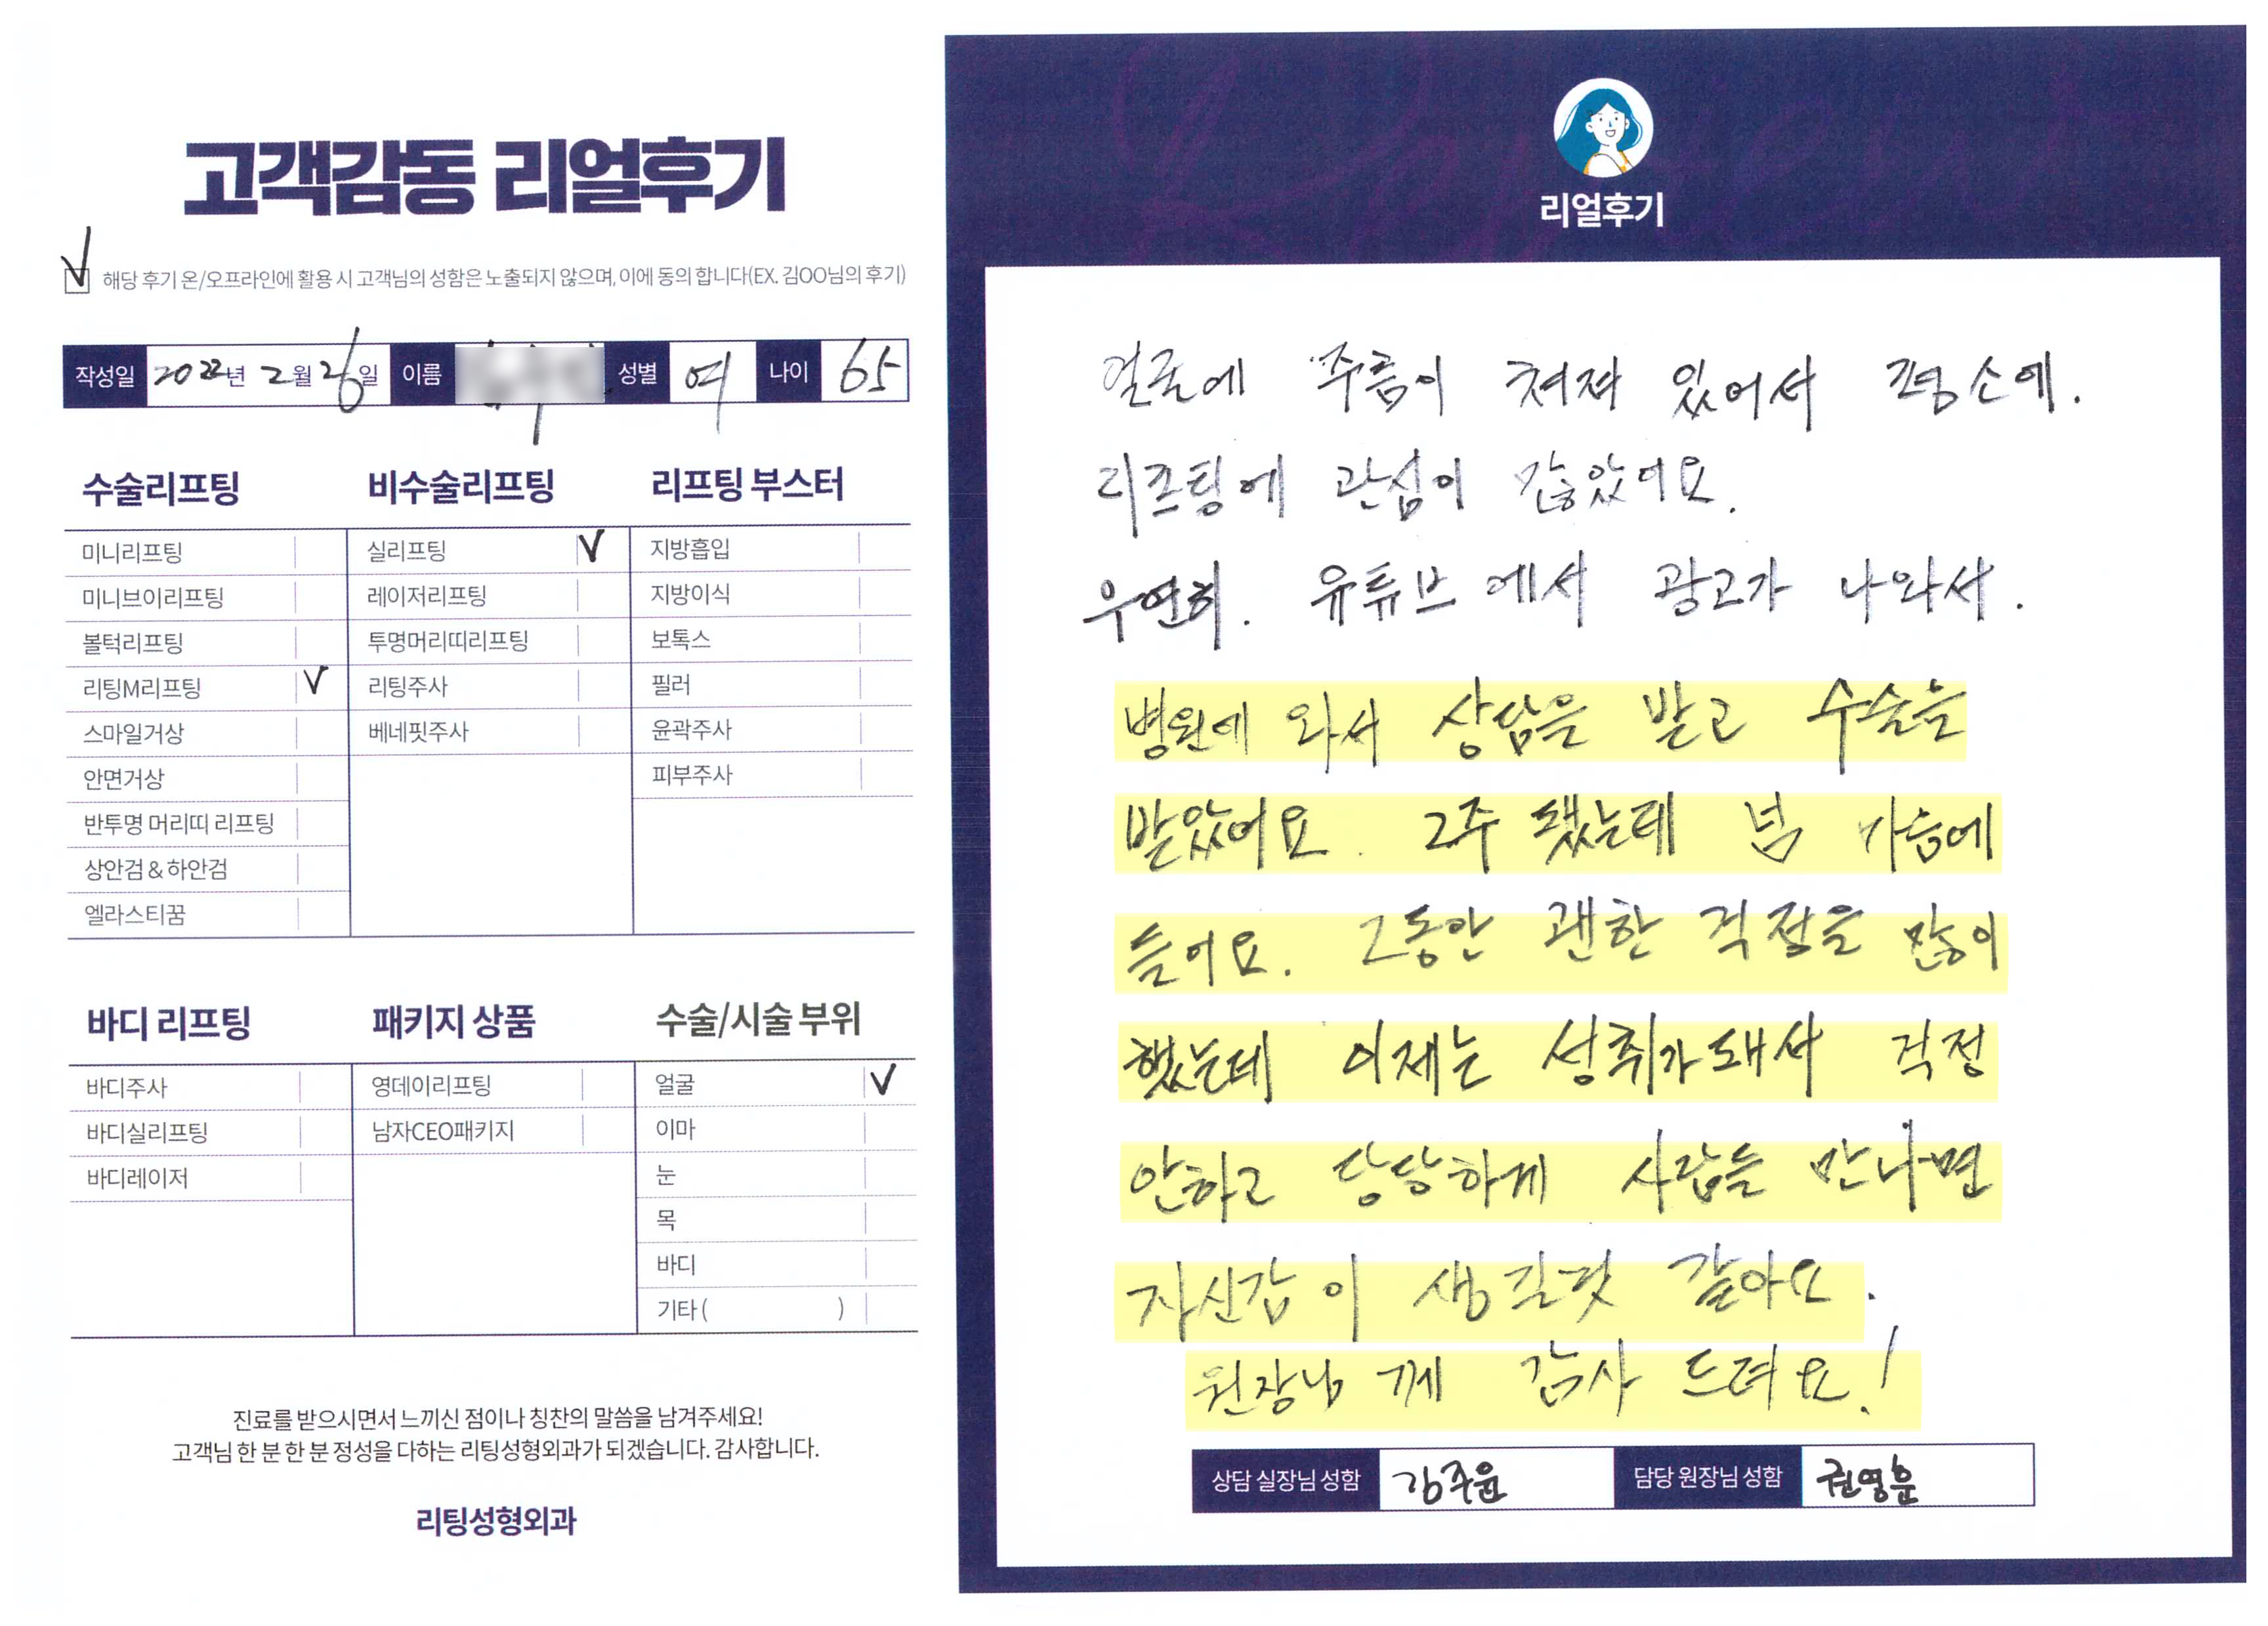 고객감동 리얼후기
해당 후기 온/오프라인에 활용 시 고객님의 성함은 노출되지 않으며, 이에 동의 합니다(EX. 김OO님의 후기)
작성일 2022년 2월 26일 이름 성별 여 나이 65
수술리프팅
미니리프팅
미니브이리프팅
볼턱리프팅
리팅M리프팅 V
스마일거상
안면거상
반투명 머리띠 리프팅
상안검&하안검
엘라스티꿈
비수술리프팅
실리프팅 V
레이저리프팅
투명머리띠리프팅
리팅주사
베네핏주사
리프팅 부스터
지방흡입
지방이식
보톡스
필러
윤곽주사
피부주사
바디 리프팅
바디주사
바디실리프팅
바디레이저
패키지 상품
영데이리프팅
남자CEO패키지
수술/시술 부위
얼굴 V
이마
눈
목
바디
기타 ( )
진료를 받으시면서 느끼신 점이나 칭찬의 말씀을 남겨주세요!
고객님 한 분 한 분 정성을 다하는 리팅성형외과가 되겠습니다. 감사합니다.
리팅성형외과
리얼후기
얼굴에 주름이 쳐져 있어서 평소에.
리프팅에 관심이 많았어요.
우연히. 유튜브에서 광고가 나와서.
병원에 와서 상담을 받고 수술을
받았어요. 2주 됐는데 넘 가슴에
들어요. 그동안 괜한 걱정을 많이
했는데 이제는 성취가돼서 걱정
안하고 당당하게 사람들 만나면
자신감이 생길것 같아요.
원장님께 감사 드려요!
상담 실장님 성함 김주윤 담당 원장님 성함 권영훈